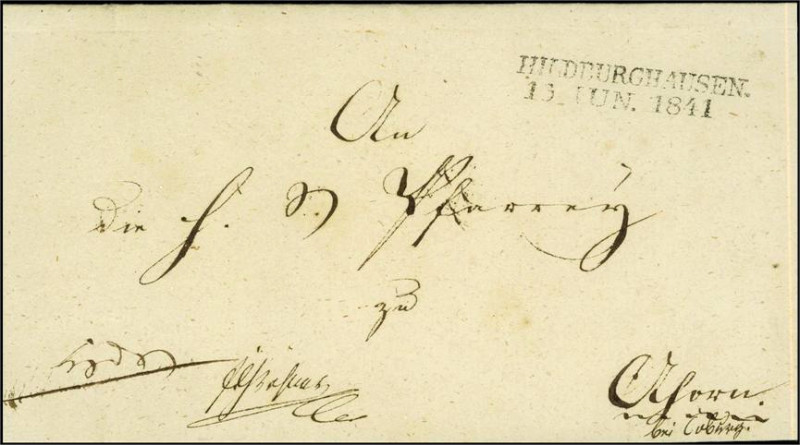 HILDBURGHAUSEN.
15. JUN. 1841
An
die H. S. Pfarrey
zu
Ahorn.
bei Coburg.